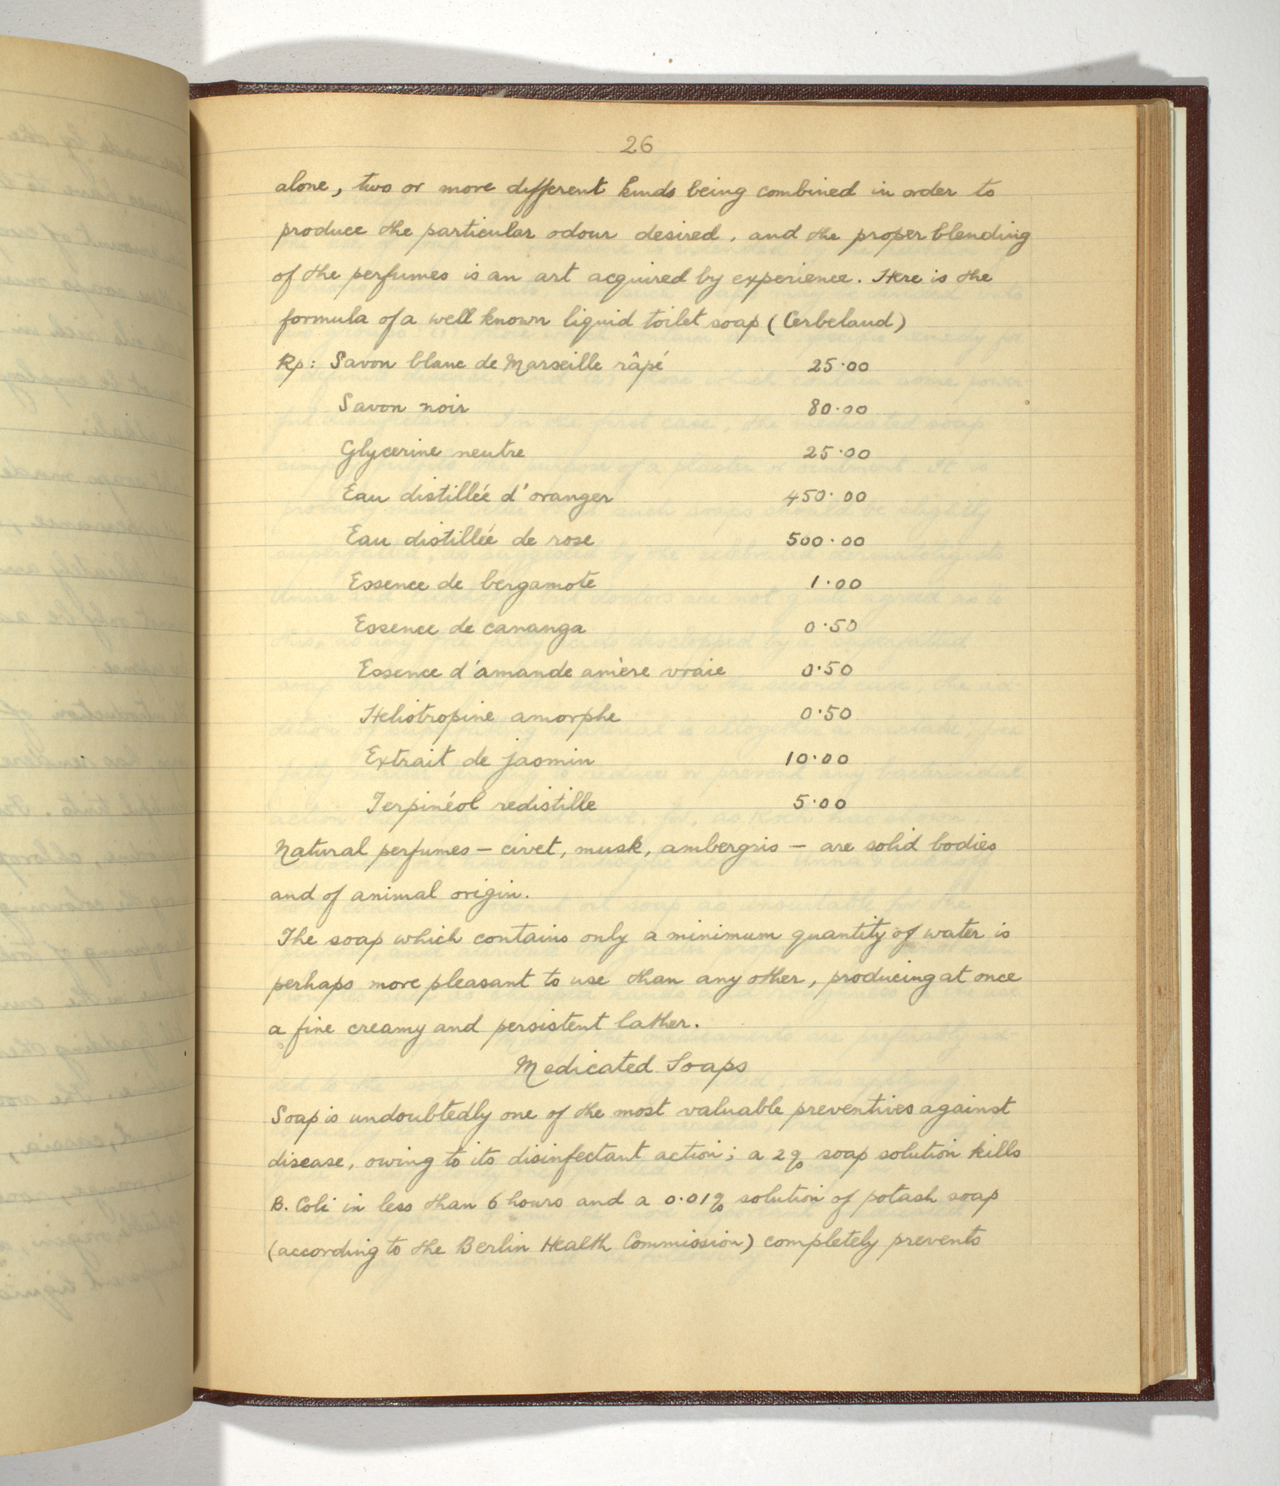 26
alone, two or more different kinds being combined in order to
produce the particular odour desired, and the proper blending
of the perfumes is an art acquired by experience. Here is the
formula of a well known liquid toilet soap (Cerbelaud)
Rp: Savon blanc de Marseille râpé 25·00
Savon noir 80·00
Glycerine neutre 25·00
Eau distillée d'oranger 450·00
Eau distillée de rose 500·00
Essence de bergamote 1·00
Essence de cananga 0·50
Essence d'amande amère vraie 0·50
Heliotropine amorphe 0·50
Extrait de jasmin 10·00
Terpinéol redistille 5·00
Natural perfumes – civet, musk, ambergris – are solid bodies
and of animal origin.
The soap which contains only a minimum quantity of water is
perhaps more pleasant to use than any other, producing at once
a fine creamy and persistent lather.
Medicated Soaps
Soap is undoubtedly one of the most valuable preventives against
disease, owing to its disinfectant action; a 2% soap solution kills
B. Coli in less than 6 hours and a 0.01% solution of potash soap
(according to the Berlin Health Commission) completely prevents